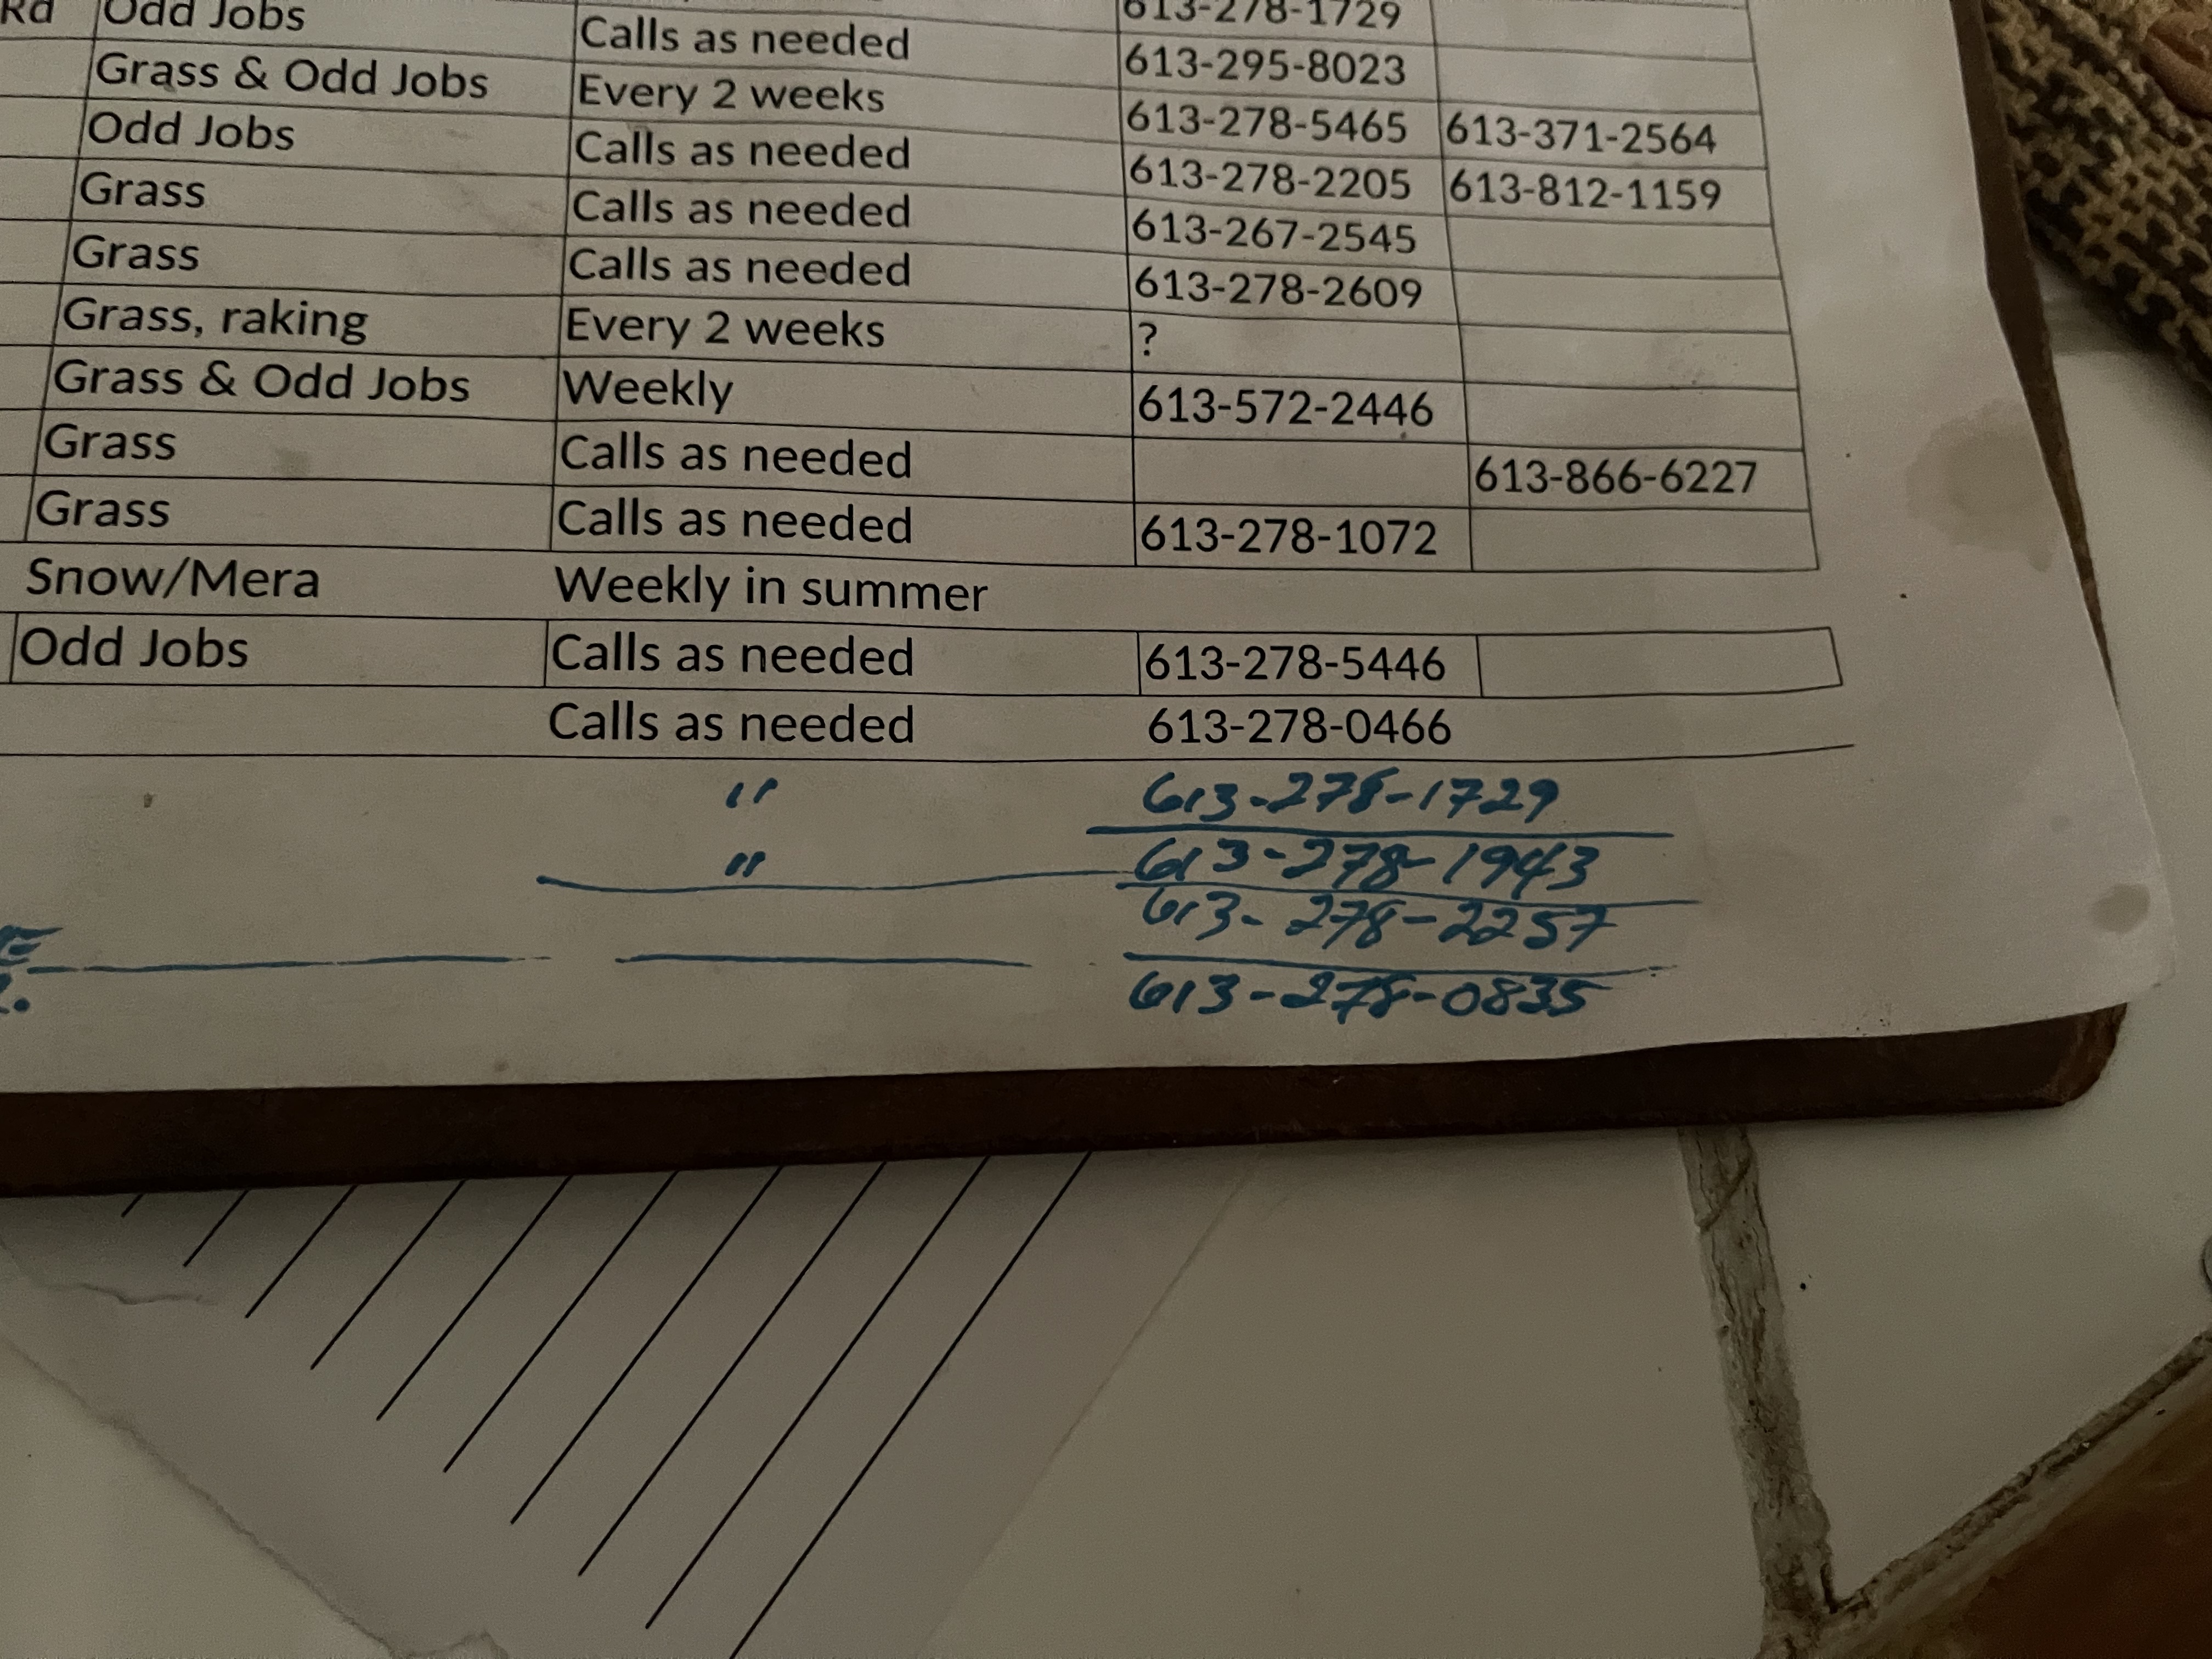 613-278-1729
Rd Odd Jobs Calls as needed 613-295-8023
Grass & Odd Jobs Every 2 weeks 613-278-5465 613-371-2564
Odd Jobs Calls as needed 613-278-2205 613-812-1159
Grass Calls as needed 613-267-2545
Grass Calls as needed 613-278-2609
Grass, raking Every 2 weeks ?
Grass & Odd Jobs Weekly 613-572-2446
Grass Calls as needed 613-866-6227
Grass Calls as needed 613-278-1072
Snow/Mera Weekly in summer
Odd Jobs Calls as needed 613-278-5446
Calls as needed 613-278-0466
" 613-278-1729
" 613-278-1943
613-278-2257
613-278-0835